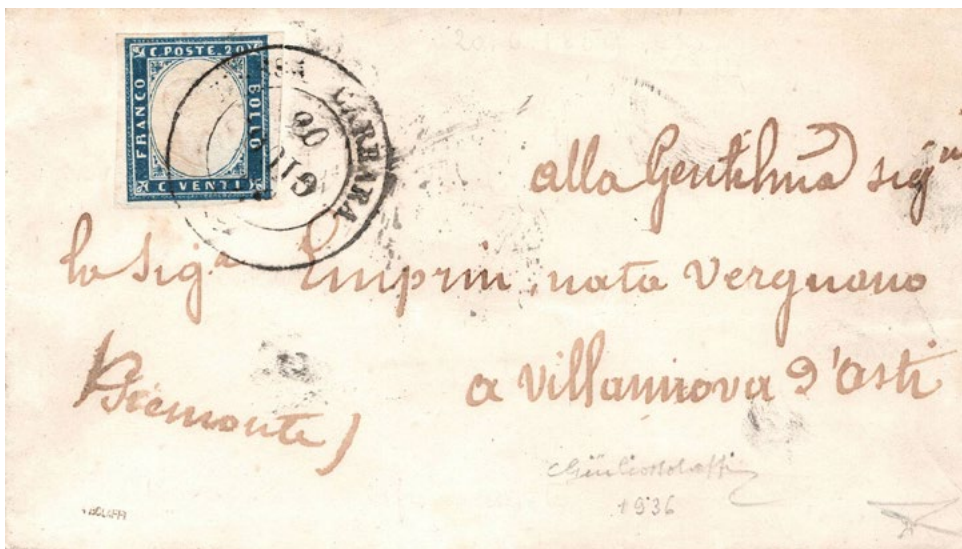 C. POSTE. 20
FRANCO
BOLLO
C. VENTI
CARRARA
GIU
60
alla Gentilma sigra
la Sigra Emprin, nata Vergnano
a Villannova d'Asti
(Piemonte)
1936